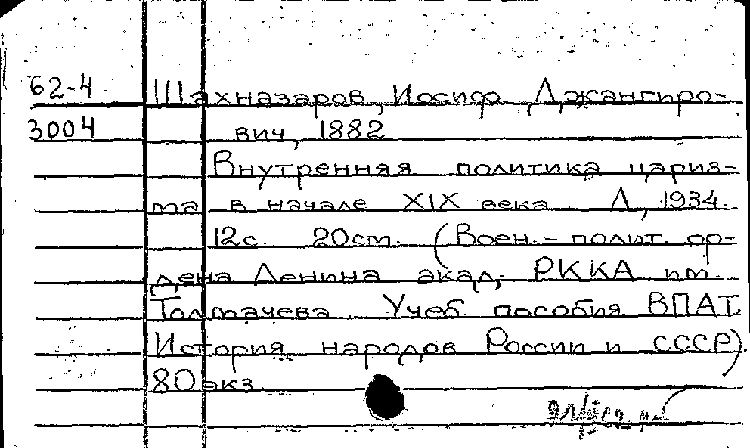 62-4 Шахназаров, Иосиф Джангиро-
3004 вич, 1882
Внутренняя политика цариз-
ма в начале XIX века Л., 1934.
12с. 20ст. (Воен.-полит. ор-
дена Ленина акад. РККА им.
Толмачева. Учеб. пособия ВПАТ.
История народов России и СССР).
80 экз.